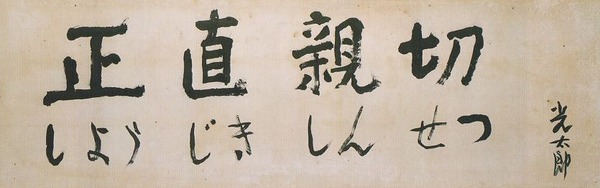 正直親切
しようじきしんせつ
光太郎